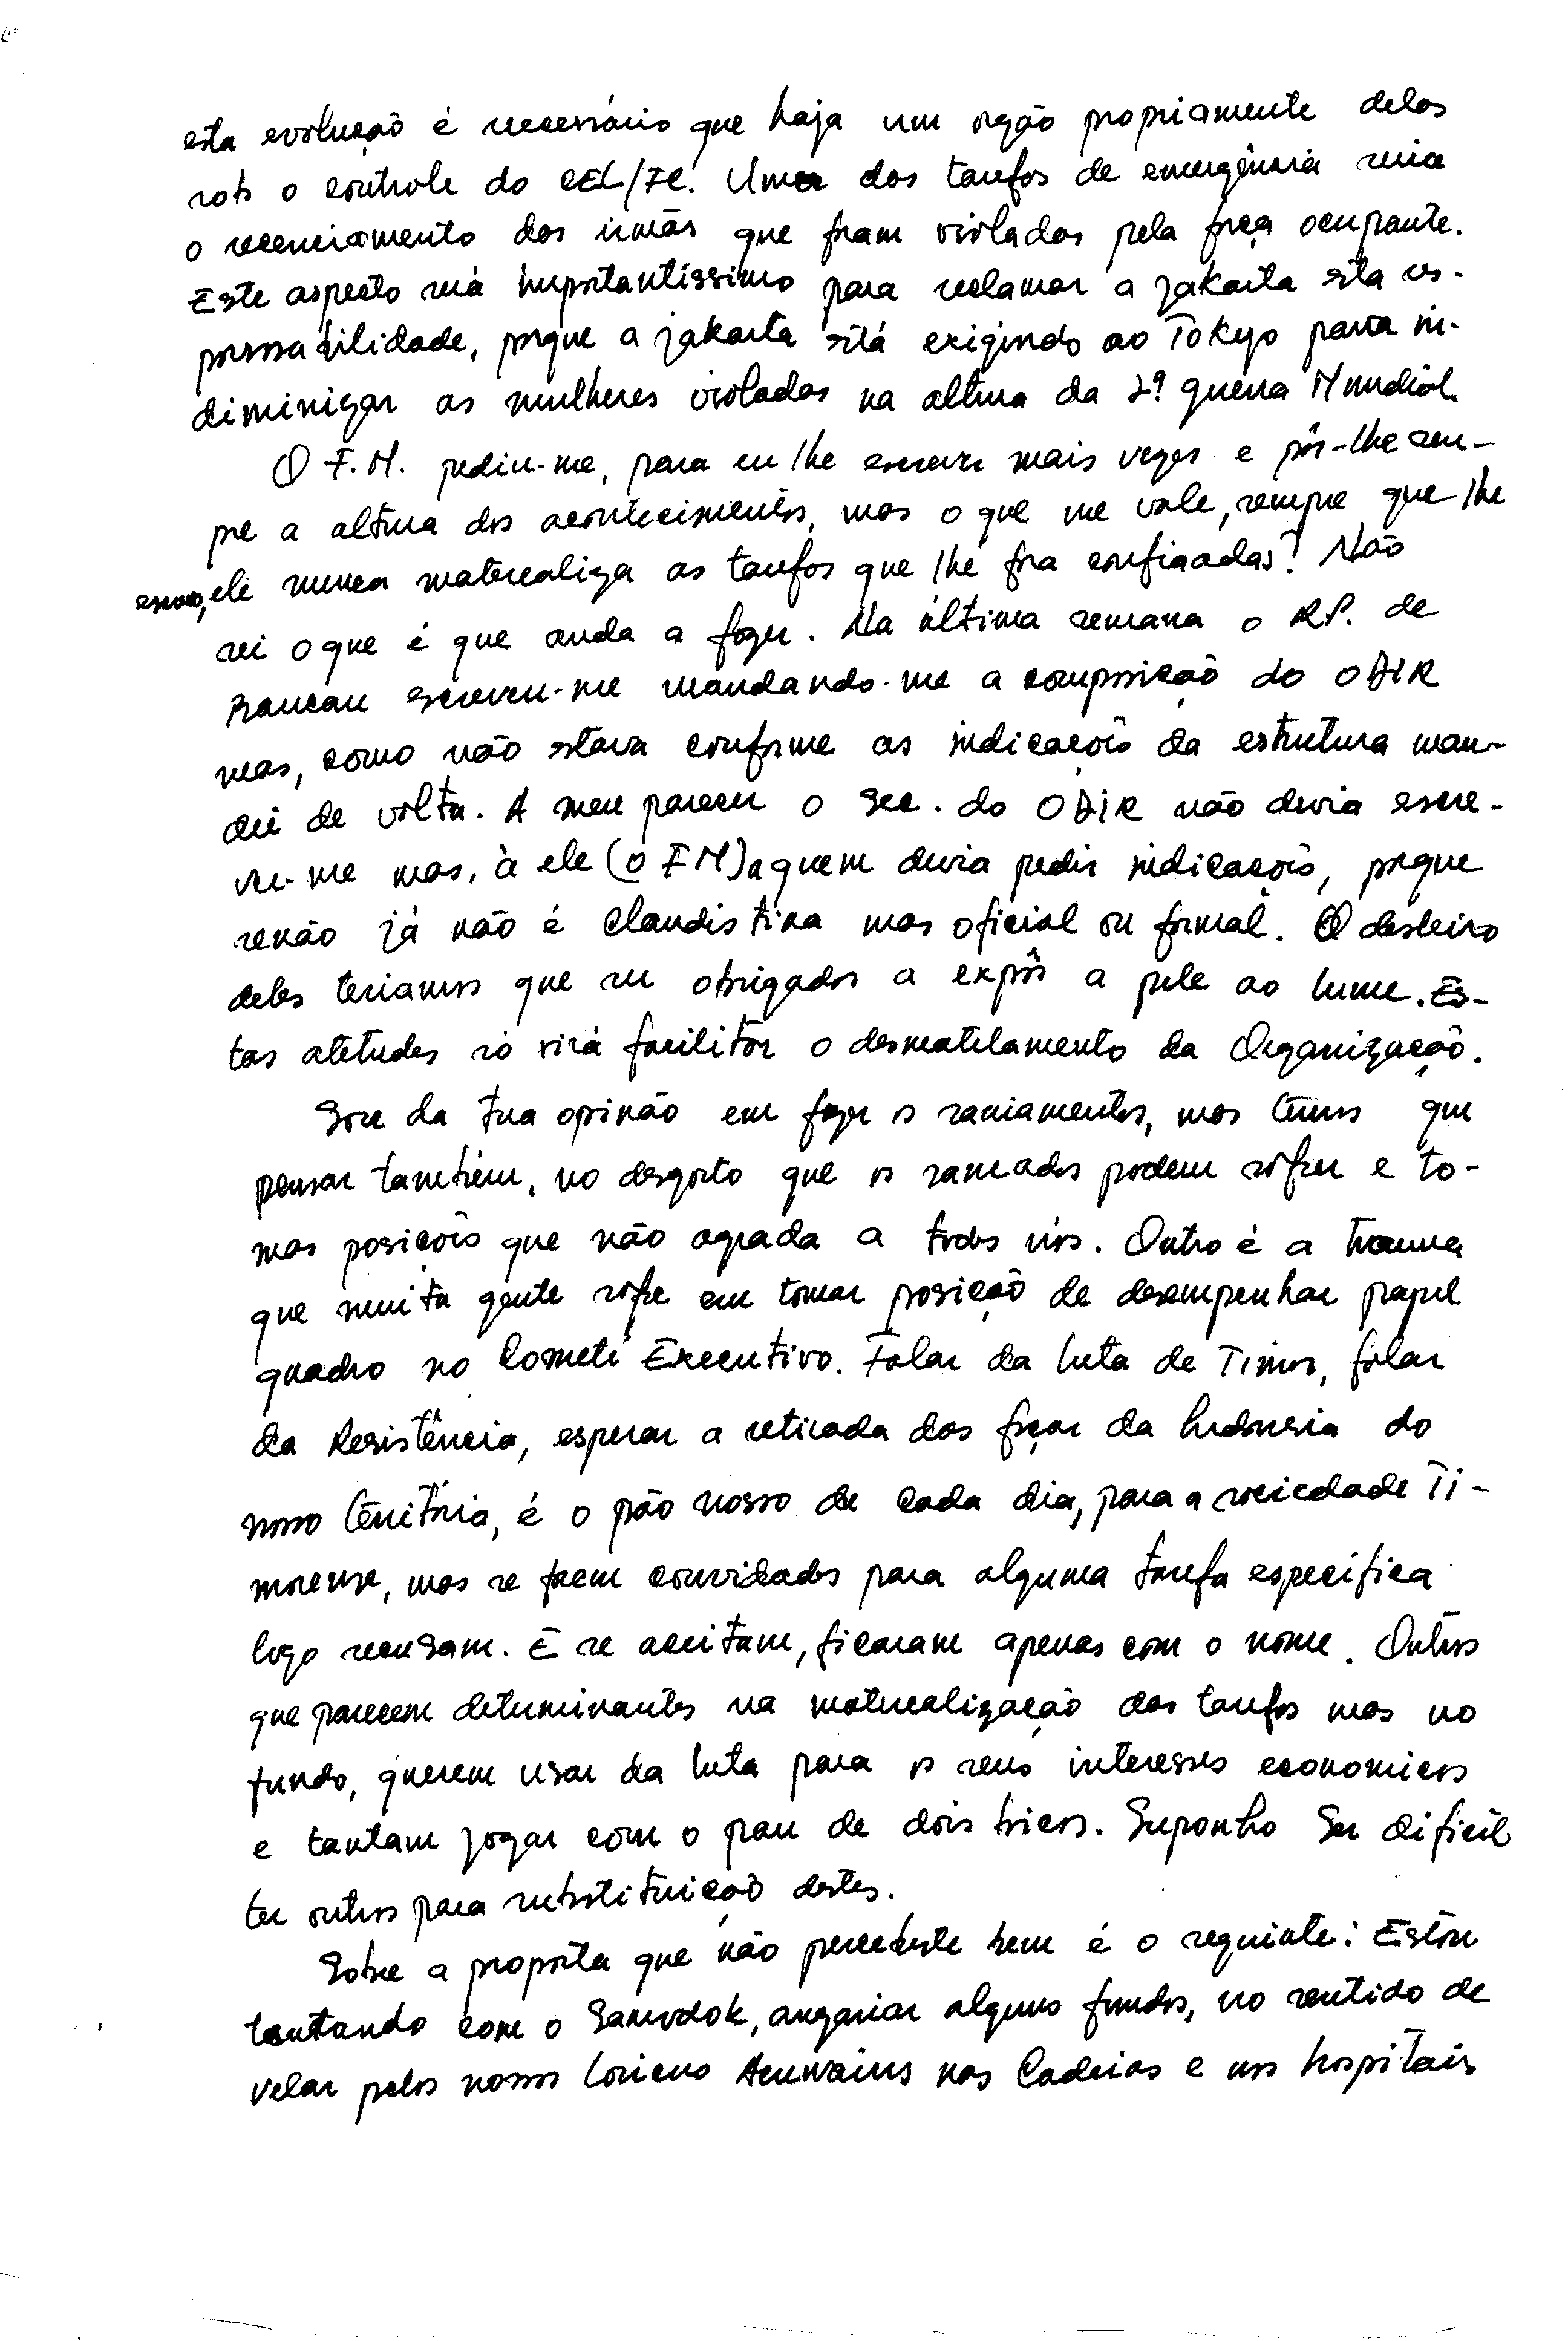 esta evolução é necessário que haja um orgão propriamente delas
sob o controle do CEL/FC. Uma das tarefas de emergência seria
o recenciamento das irmãs que foram violadas pela força ocupante.
Este aspecto será importantíssimo para reclamar a jakarta esta res-
ponssabilidade, porque a jakarta está exigindo ao Tokyo para in-
diminizar as mulheres violadas na altura da 2ª guerra Mundial.
O F.M. pediu-me, para eu lhe escrever mais vezes e pôr-lhe sem-
pre a altura dos acontecimentos, mas o que me vale, sempre que lhe
escrevo, ele nunca materealiza as tarefas que lhe fora confiaadas? Não
sei o que é que anda a fazer. Na última semana o RP. de
escreveu-me mandando-me a composição do ODIR
mas, como não estava conforme as indicações da estrutura man-
dei de volta. A meu parecer o Sec. do ODIR não devia escre-
ver-me mas, à ele (o FM) a quem devia pedir indicações, porque
senão já não é Clandistina mas oficial ou formal. O desleixo
deles teriamos que ser obrigados a expôr a pele ao lume. Es-
tas atetudes só virá facilitar o desmatelamento da Organização.
Sou da tua opinão em fazer os saniamentos, mas temos que
pensar também, no desgosto que os saneados podem sofrer e to-
mar posições que não agrada a todos nós. Outro é a trauma
que muita gente sofre em tomar posição de desempenhar papel
quadro no Cometé Executivo. Falar da luta de Timor, falar
da Resistência, esperar a retirada das forças da Indonesia do
nosso território, é o pão nosso de cada dia, para a sociedade Ti-
morense, mas se forem convidados para alguma tarefa especifica
logo recusam. E se aceitam, ficaram apenas com o nome. Outros
que parecem determinantes na materealização das tarefas mas no
fundo, querem usar da luta para os seus interesses economicos
e tantam jogar com o pau de dois bicos. Suponho Ser dificil
ter outros para substituição destes.
Sobre a proposta que não percebeste bem é o seguinte: Estou
tentando com o Samodok, angariar alguns fundos, no sentido de
velar pelos nossos nas Cadeias e nos hospitais